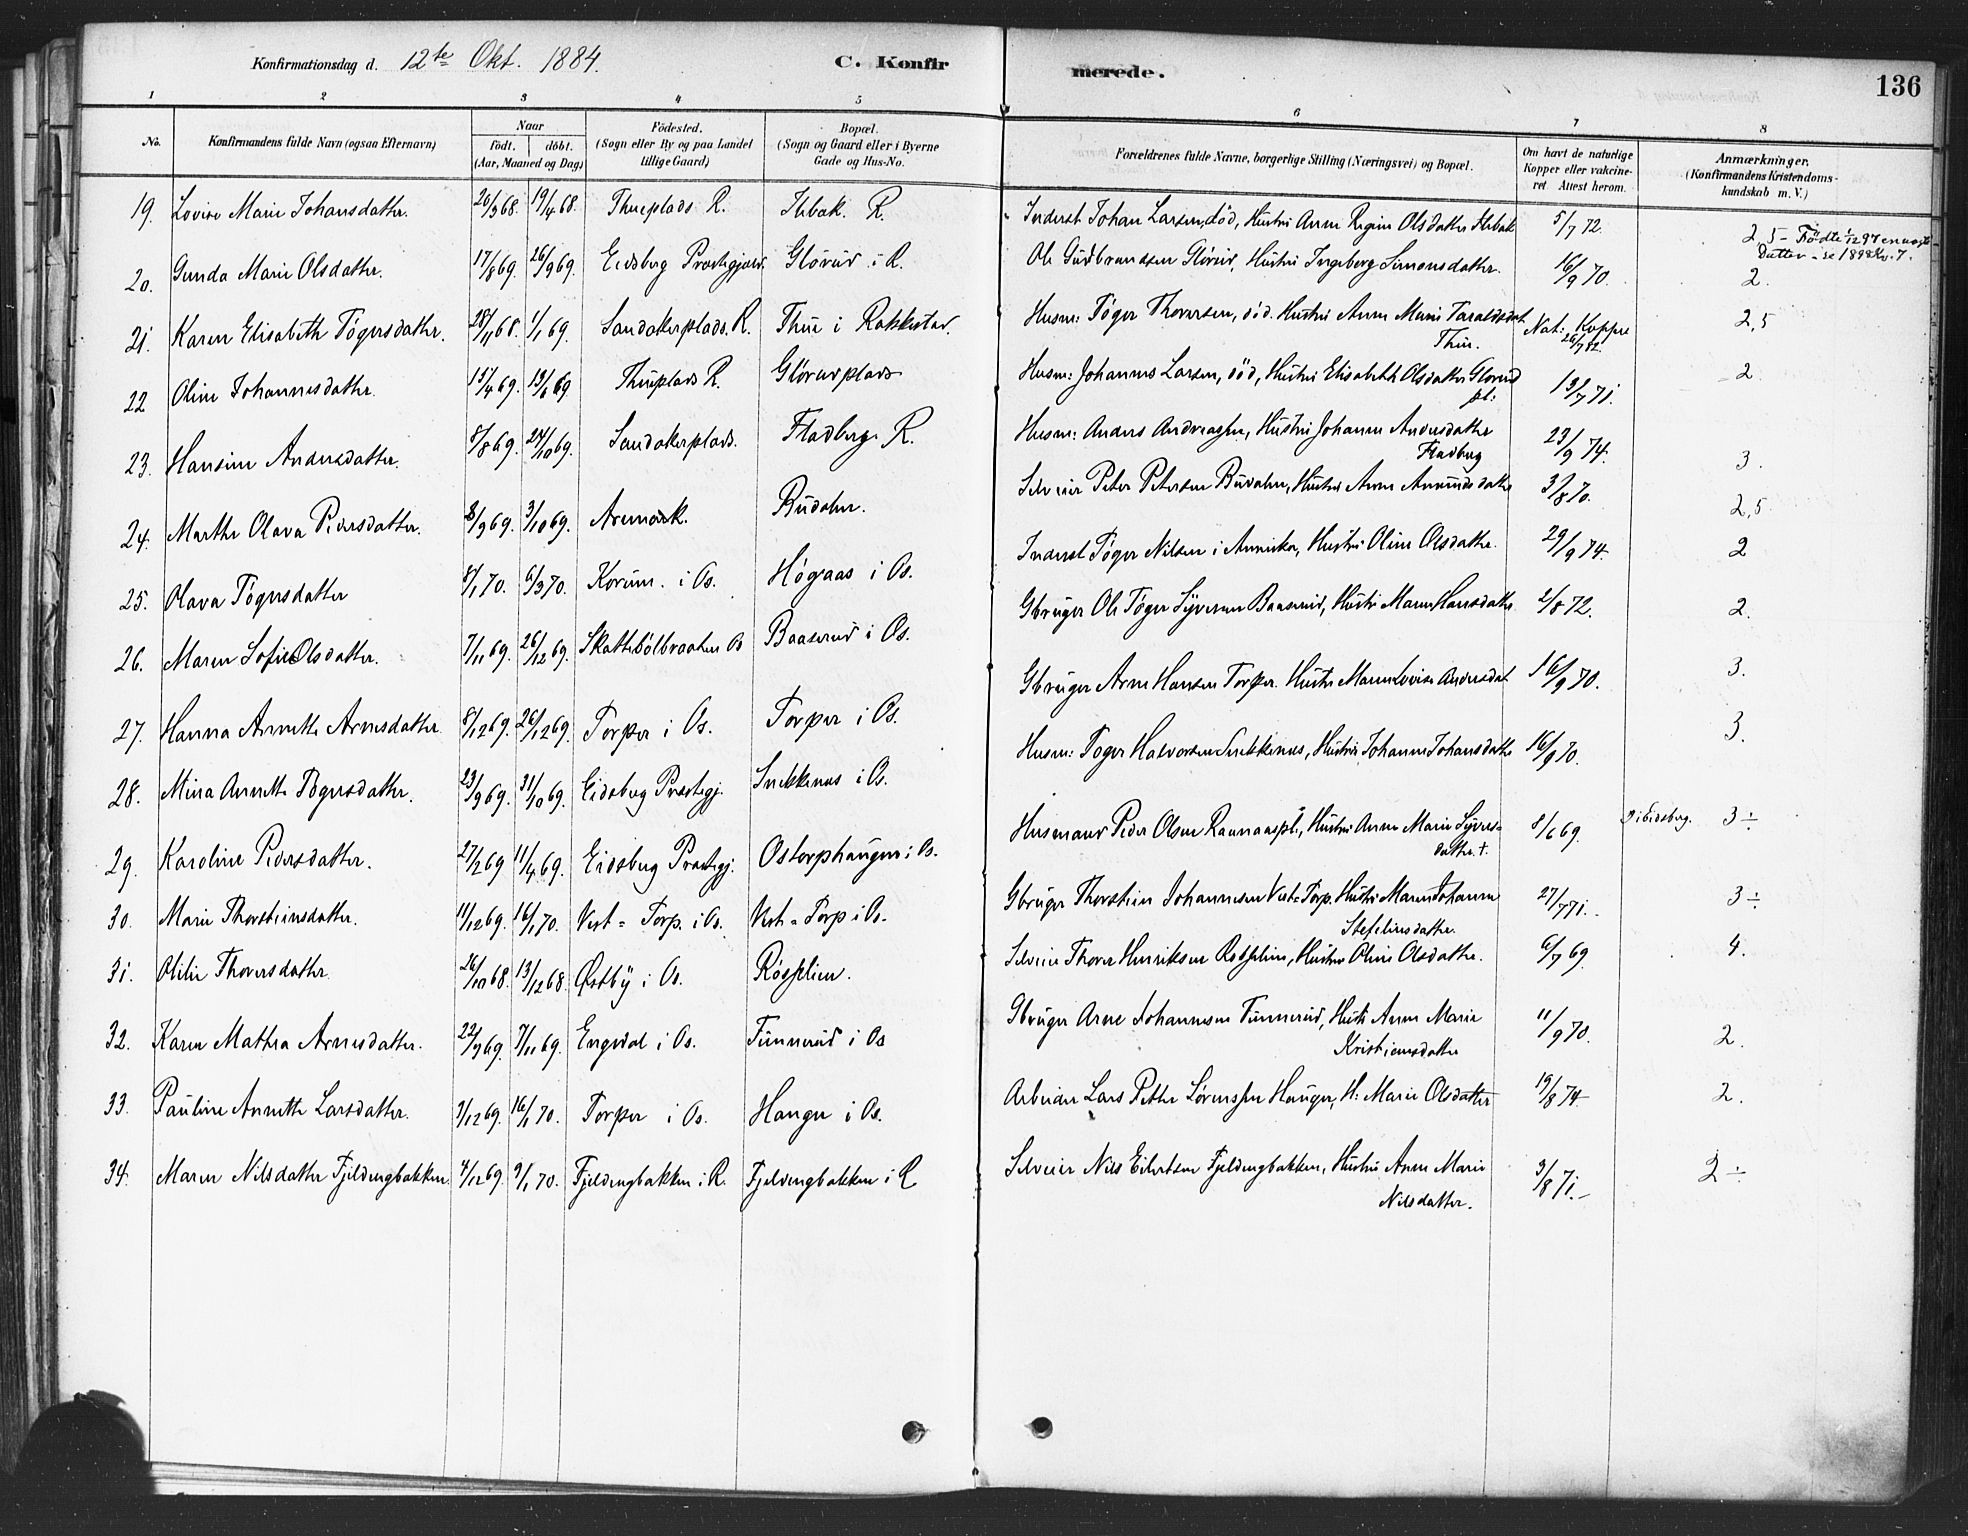 Konfirmationsdag d. 12te Okt. 1884.
C. Konfirmerede.
136
1 2 3 4 5 6 7 8
No. Konfirmandens fulde Navn (ogsaa Efternavn) Naar født. døbt. (Aar, Maaned og Dag) Fødested. (Sogn eller By og paa Landet tillige Gaard) Bopæl. (Sogn og Gaard eller i Byerne Gade og Hus-No. Forældrenes fulde Navne, borgerlige Stilling (Næringsvei) og Bopæl. Om havt de naturlige Kopper eller vakcineret Attest herom. Anmærkninger. (Konfirmandens Kristendomskundskab m. V.)
19. Lovise Marie Johansdatter. 20/3 68. 19/4 68. Thueplads R. R. Inderst Johan Larsen, død, Hustru Anne Regine Olsdatter 5/7 72. 2,5 - Fødte 1/12 97 en
Datter - se 1898
20. Gunda Marie Olsdatter. 17/8 69. 26/9 69. Eidsberg Præstegjæld. Glørud i R. Ole Gudbrandsen Glørud, Hustru Ingeborg Simonsdatter. 16/9 70. 2.
21. Karen Elisabeth Tøgersdatter. 28/11 68. 1/1 69. Sandakerplads. R. Thue i Rakkestad. Husm: Tøger Thoresen, død. Hustru Anne Marie Taraldsdat Nat: Koppe 2,5
Thue.
22 Oline Johannesdatter. 15/4 69. 13/6 69 Thueplads R. Glørudplads Husm: Johannes Larsen, død, Hustru Elisabeth Olsdatter Glørud 13/7 71. 2.
pl:
23. Hansine Andersdatter. 8/8 69. 24/10 69. Sandakerplads. Fladberg R. Husm: Anders Andreassen, Hustru Johanne Andersdatter 23/9 74. 3.
Fladberg
24. Marthe Olava Pedersdatter. 8/9 69. 3/10 69. Aremark. Rudolen. Selveier Peter Petersen Rudolen, Hustru Anne Amundsdatter 3/8 70. 2,5.
25. Olava Tøgersdatter 8/1 70. 6/3 70. Korum. i Os. Høgaas i Os. Inderst Tøger Nilsen i Amerika, Hustru Oline Olsdatter. 29/9 74. 2
26. Maren Sofie Olsdatter. 7/11 69. 26/12 69. Skattebølbraaten Os Baaserud i Os. Gbruger Ole Tøger Syversen Baaserud, Hustru Maren Hansdatter 2/8 72. 2.
27. Hanna Annette Arnesdatter. 8/12 69. 26/12 69. Torper i Os. Torper i Os. Gbruger Arne Hansen Torper. Hustru Maren Lovise Andersdat 16/9 70. 3.
28. Mina Annette Tøgersdatter. 23/9 69. 31/10 69. Eidsberg Præstegj. Snekkenes i Os. Husm: Tøger Halvorsen Snekkenes, Hustru Johanne Johansdatter 16/9 70. 3.
29. Karoline Pedersdatter. 27/2 69 11/4 69. Eidsberg Præstegj. Ostorphaugen i Os. Husmand Peder Olsen Raanaaspl:, Hustru Anne Marie Syvers- 8/6 69. i Eidsberg. 3 ÷
datter. †.
30. Marie Thorsteinsdatter. 11/12 69. 16/1 70. Vest-Torp. i Os. Vest-Torp i Os. Gbruger Thorstein Johannesen Vest-Torp. Hustru Maren Johanne 27/7 71. 3 ÷
Stefensdatter.
31. Otilie Thoresdatter. 26/10 68. 13/12 68. Østby i Os. Røsslien. Selveier Thore Henriksen Røsslien, Hustru Oline Olsdatter. 6/7 69. 4.
32. Karen Mathea Arnesdatter. 22/9 69. 7/11 69. Engedal i Os. Tunnerud i Os Gbruger Arne Johannesen Tunnerud, Hustr Anne Marie 11/9 70. 2.
Kristiansdatter
33. Pauline Annette Larsdatter. 7/12 69. 16/1 70. Torper i Os. Hauger i Os. Arbeider Lars Petter Sørenssen Hauger, H: Marie Olsdatter 19/8 74. 2.
34. Maren Nilsdatter Fjeldengbakken. 4/12 69. 9/1 70. Fjeldengbakken i R. Fjeldengbakken i R Selveier Nils Eilertsen Fjeldengbakken, Hustru Anne Marie 3/8 71. 2 ÷
Nilsdatter.